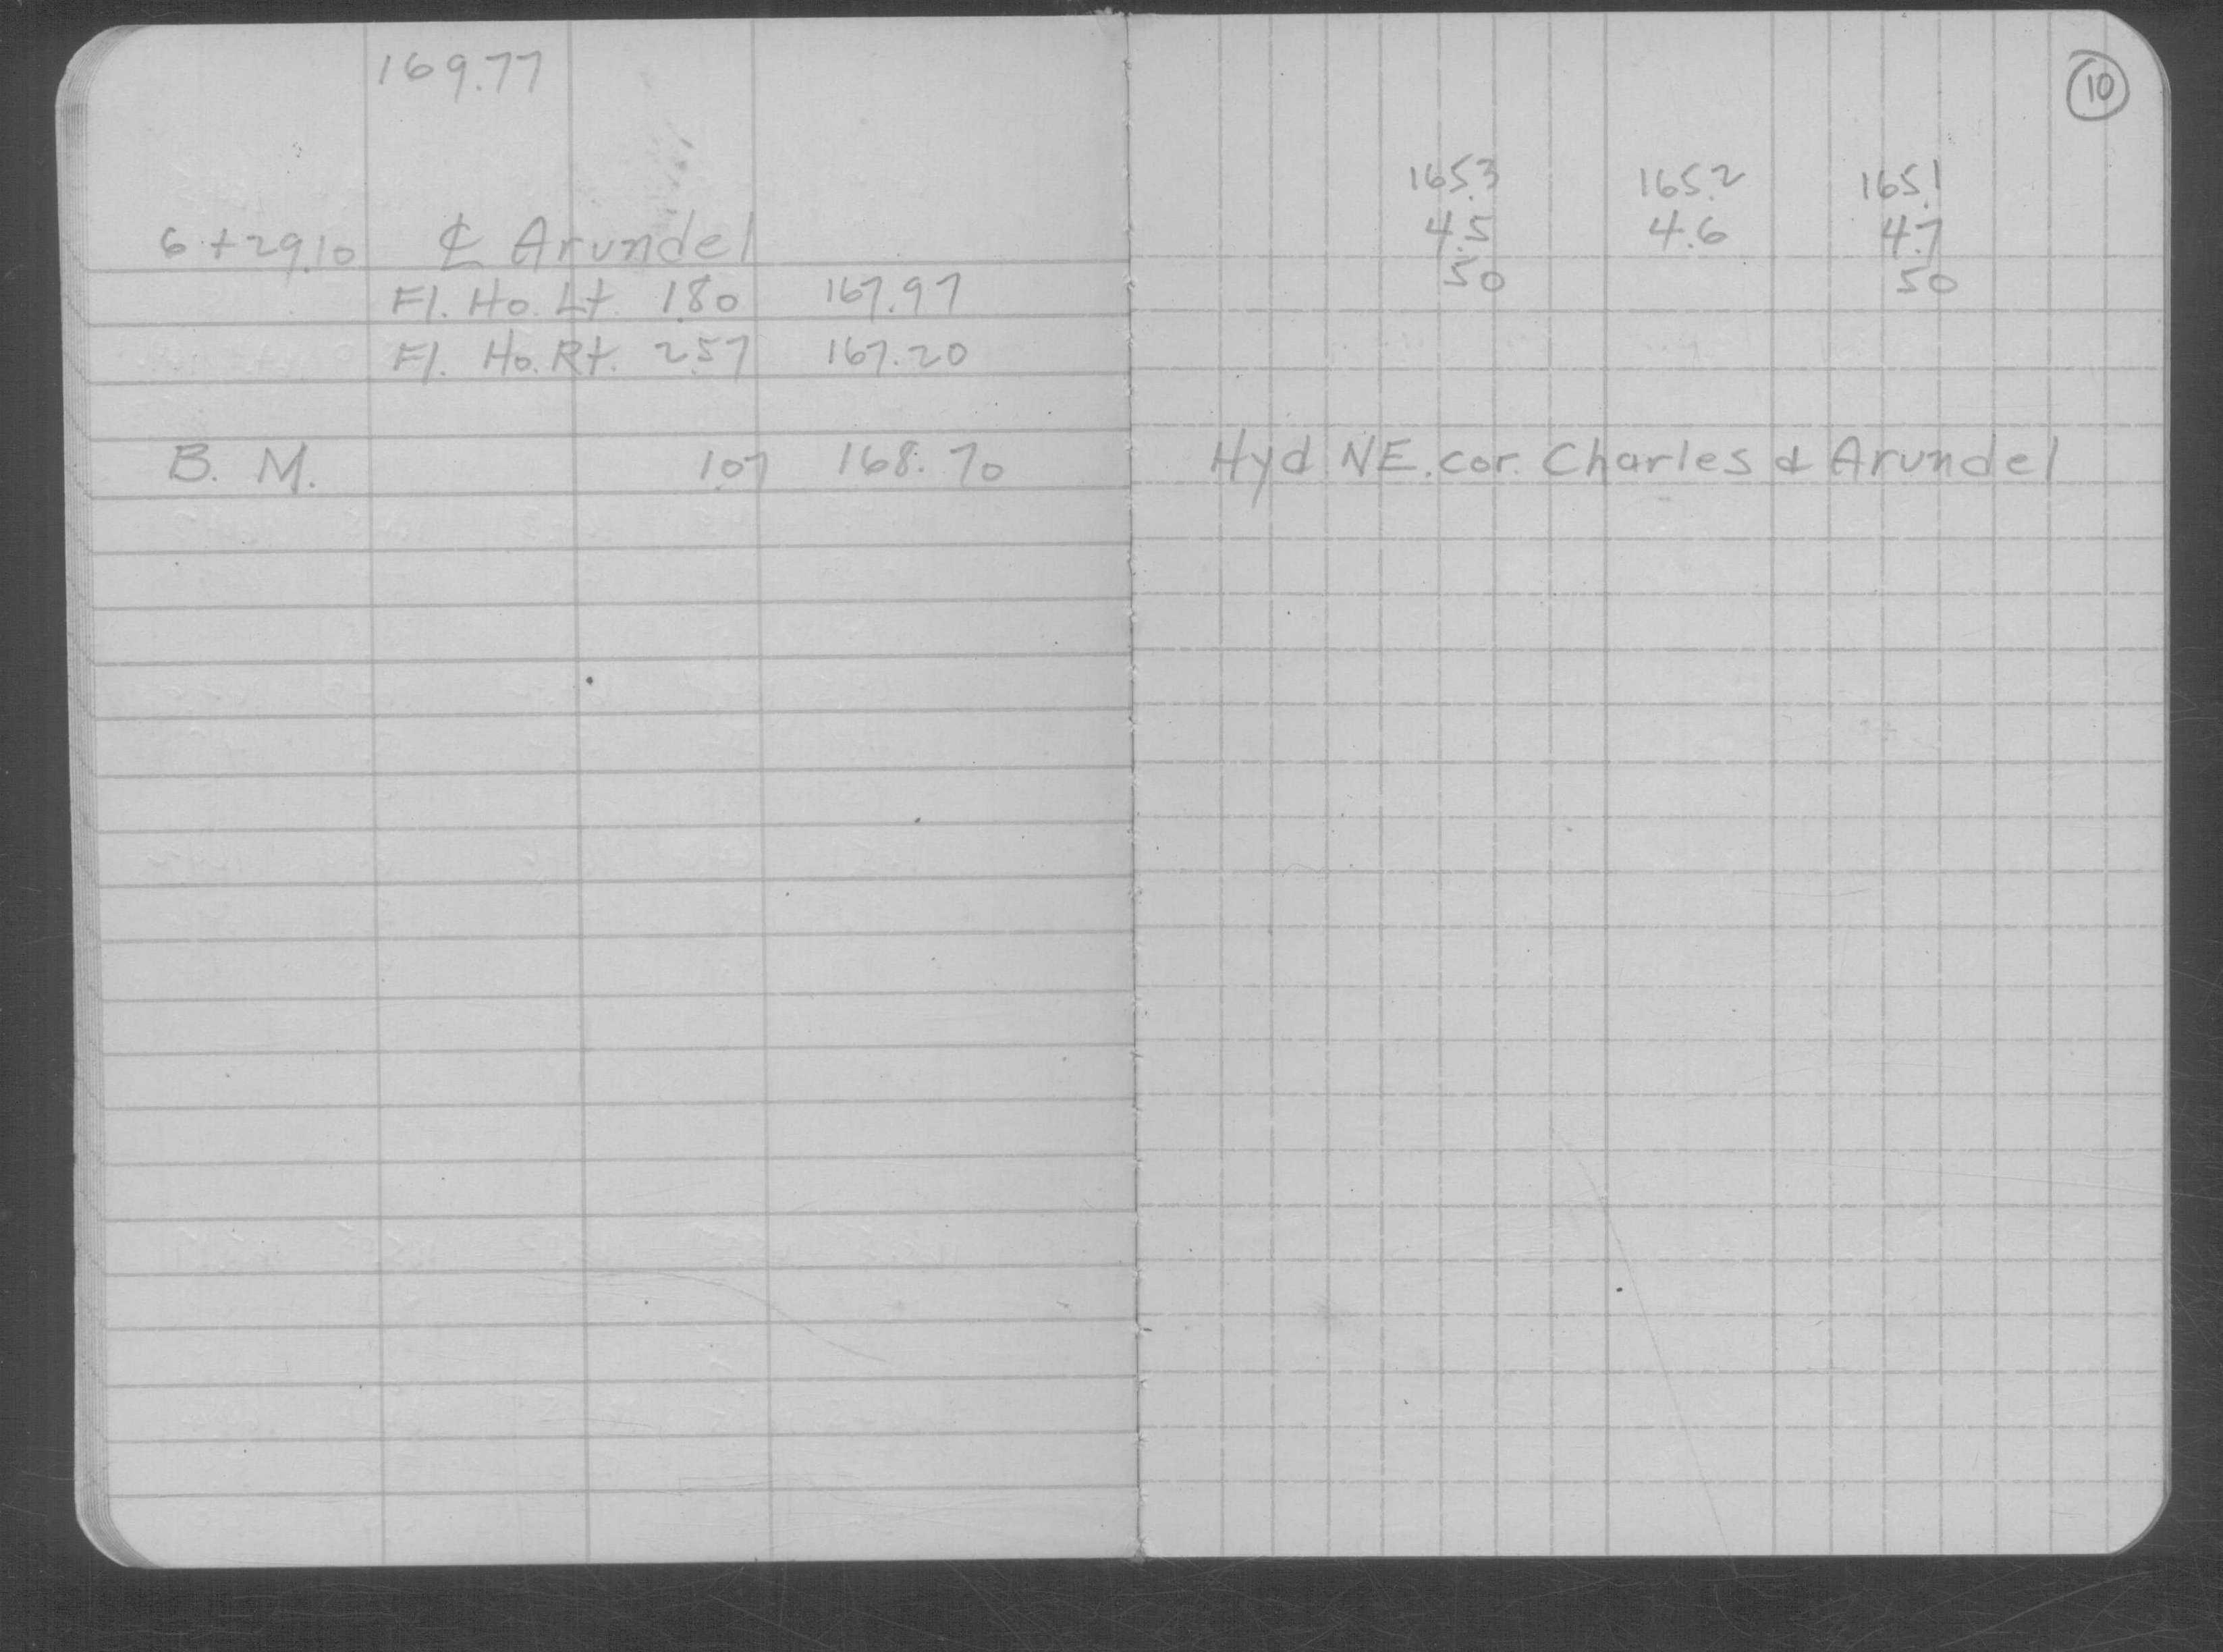 169.77
6+29.10 ℄ Arundel
Fl. Ho. Lt. 1.80 167.97
Fl. Ho. Rt. 2.57 167.20
B. M. 1.07 168.70
10
165.3 165.2 165.1
4.5 4.6 4.7
50 50
Hyd NE. cor. Charles & Arundel